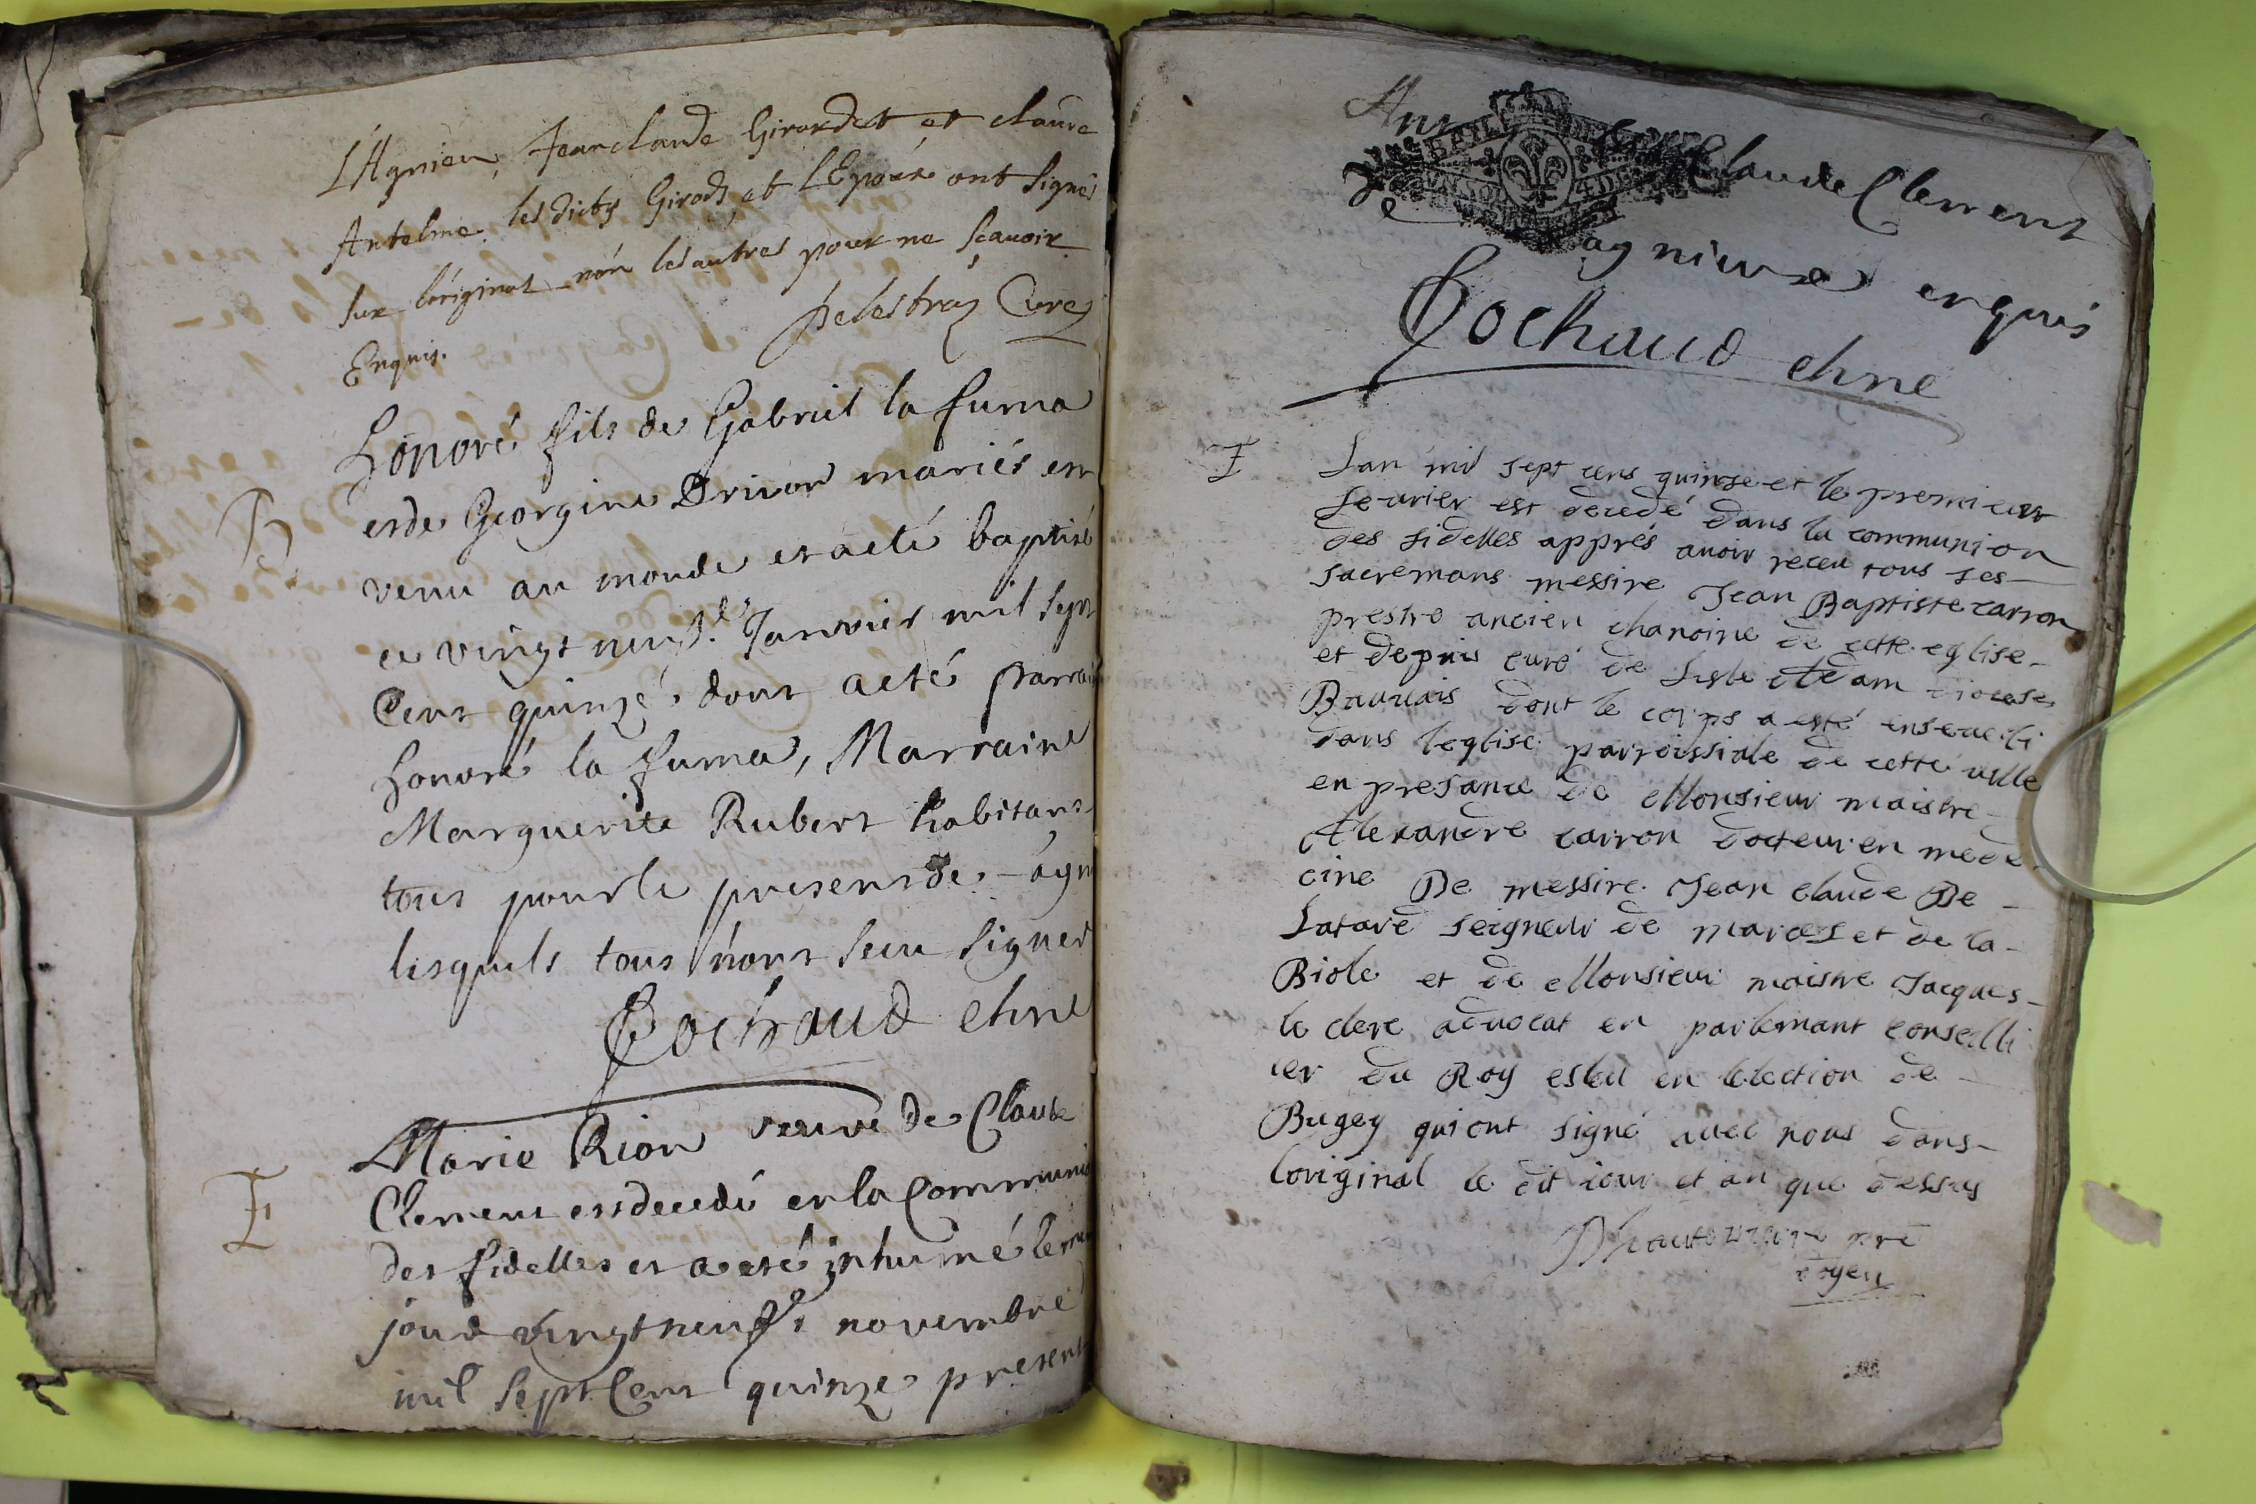 LAgnieu, Jean claude Girardet et claude
Antelme. les dicts Girods et LEpoux ont signés
sur loriginal non les autres pour ne sçavoir
Enquis.
pelestraz Curez
B
honoré fils de Gabriel la fuma
et de Georgine Drivon mariés est
venu au monde et a eté baptisé
ce vingt neuf.e Janvier mil sept
Cent quinze dont acté parrain
honoré la fuma, Marraine
Marguerite Rubert habitans
tous pour le present de - agn
lesquels tous n'ont sceu signer
Cochaud chne
E
Marie Rion veuve de Claude
Clement est decedé en la Communi
des fidelles et a eté inhumé le
jour vingt neuf novembre
mil sept Cent quinze present
Claude Clement
D agnieu enquis
Cochaud chne
E
Lan mil sept cens quinse et le premier
feurier est decedé dans la communion
des fidelles apprés auoir receu tous ses
sacremans messire Jean Baptiste carron
prestre ancien chanoine de cette eglise
et depuis curé de Lisle Adam diocese
Bauuais dont le corps a esté enseueli
dans leglise parroissiale de cette ville
en presance de Monsieur maistre
Alexandre carron docteur en mede
cine De messire Jean claude De
Latard seigneur de mardes et de la
Biole et de Monsieur maistre Jacques
le clerc aduocat en parlemant conseilli
ier du Roy esleu en lelection de
Bugey qui ont signé avec nous dans
loriginal le dit iour et an que dessus
pre
doyen